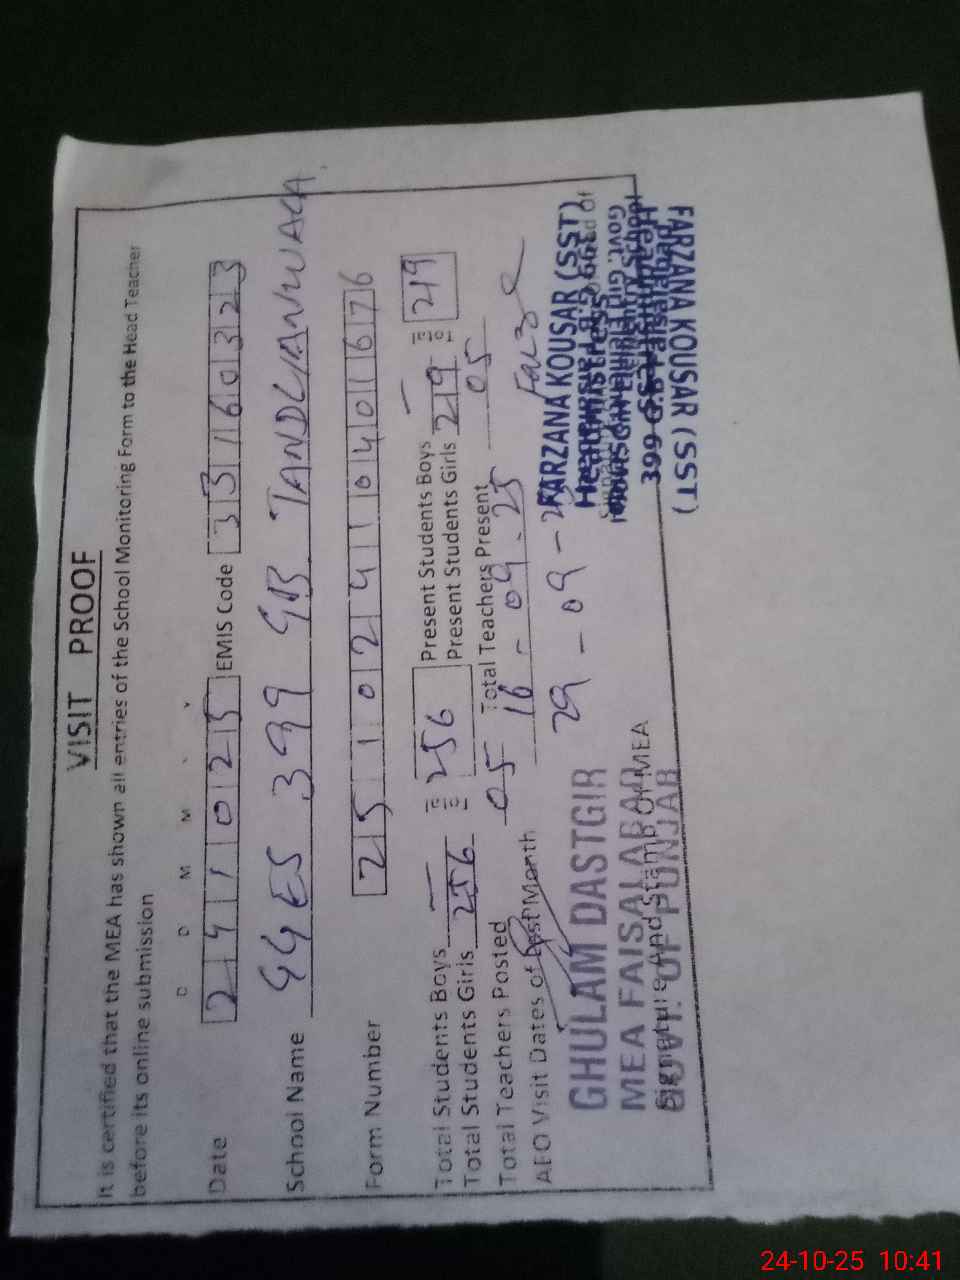 VISIT PROOF
It is certified that the MEA has shown all entries of the School Monitoring Form to the Head Teacher
before its online submission
D D M M Y Y
Date 241025 EMIS Code 33160323
School Name GGES 399 GB TANDLIANWALA
Form Number 25102410401676
Total Students Boys — 256 Present Students Boys — 219
Total Students Girls 256 Present Students Girls 219
Total Teachers Posted 05 Total Teachers Present 05
AEO Visit Dates of Last Month 16-09-25
29-09-25
GHULAM DASTGIR
MEA FAISALABAD
GOVT. OF PUNJAB
Signature And Stamp Of MEA
FARZANA KOUSAR (SST)
Headmistress
399
FARZANA KOUSAR (SST)
24-10-25 10:41